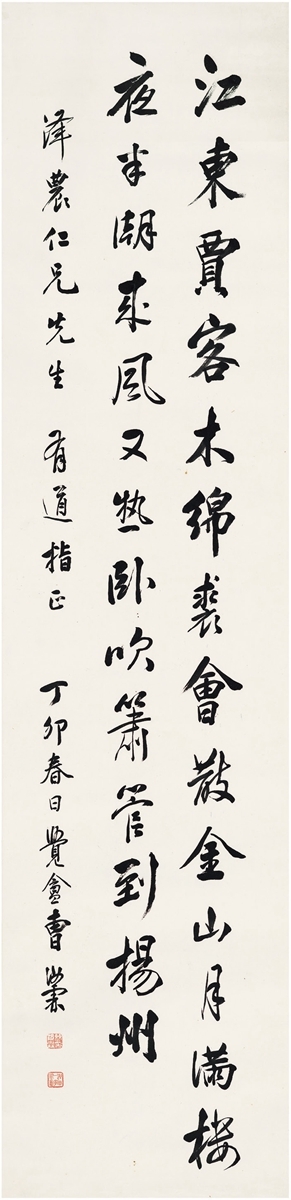 江東賈客木綿裘會散金山月滿樓
夜半潮來風又熟臥吹簫管到揚州
澤農仁兄先生 有道指正 丁卯春日覺盦曹汝霖